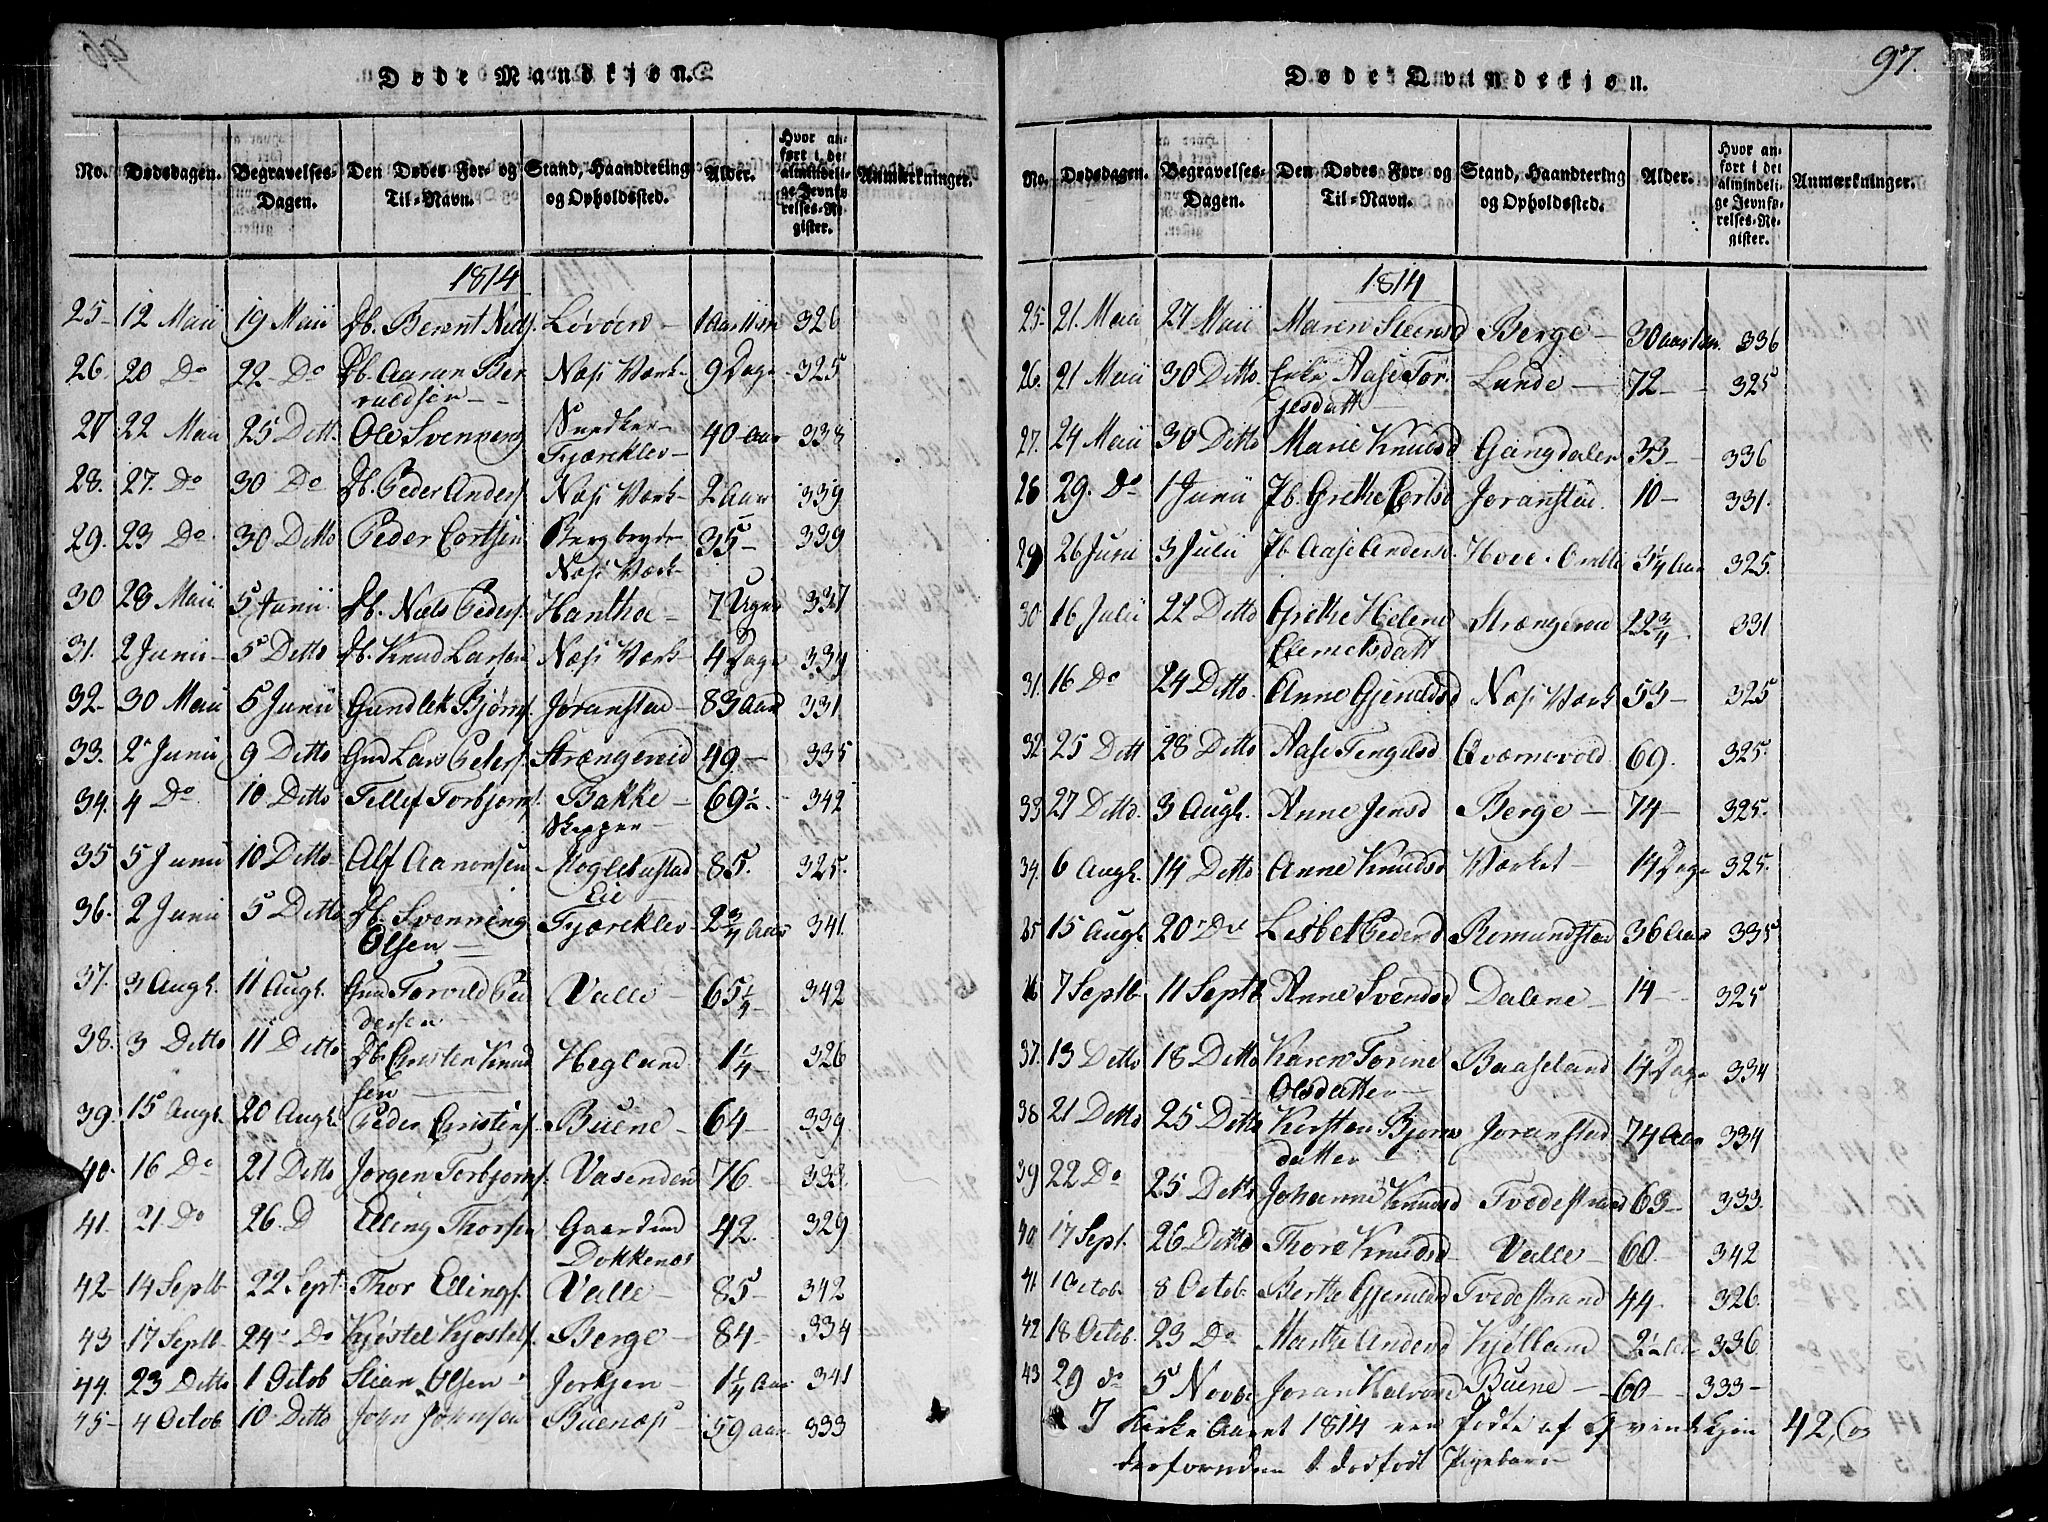 96
Døde Mandkjøn.
No. Dødsdagen. Begravelses-Dagen. Den Dødes For- og Til-Navn. Stand, Haandtering og Opholdssted. Alder. Hvor anført i det almindelige Jevnførelses-Register. Anmærkninger.
1814
25- 12 Maii 19 Maii Db. Berent Niels. Løvøen- 1 Aar 326
26. 20 Do 22 Do Db. Aaran Ber Næs Værk- 9 Dage 325
nuldsen
27 22 Maii 25 Ditto Ole Svenning Snedker- 40 Aar 338
Fjæreklev-
28. 27. Do 30 Do Db. Peder Anders. Næs Værk- 2 Aar 339
29. 23 Do 30 Ditto Peder Cortsen 35- 339
Næs Værk-
30 28 Maii 5 Junii Db. Niels Peders. Hantho- 7 Uger 337
31. 2 Junii- 5 Ditto Db. Knud Larsen Næs Værk- 4 Dage 334
32- 30 Maii 5 Junii Gundlek Bjørns. Joranstad- 83 Aar 331
33. 2 Junii 9 Ditto Gml Lars Peters. Strængereid 49- 335
34. 4 Do 10 Ditto Tellef Torbjorns. Bakke- 69½ 342
Skipper-
35 5 Junii 10 Ditto Alf Aaronsen Moglestustad 85. 325.
Eie
36. 2 Junii 5 Ditto Db. Svenning Fjæreklev- 2¾ Aar 341.
Olsen-
37. 3 Augh. 11 Augh. Gml Torvild Pe Valle- 65¼- 342
dersen
38. 3 Ditto 11 Ditto Db. Cristen Knud Heglund 1¼- 326
sen
39. 15 Augh. 20 Augh. Peder Cristens. Buene- 64- 339
40- 16 Do 21 Ditto Jørgen Torbjorns. Vasenden 76- 333.
41. 21 Do 26. D Elling Thorsen Gaardmd 42. 329
Dokkenes
42- 14 Septb 22 Sept. Thor Ellings. Valle- 85- 342
43 17 Septb. 24 Do Kjøstel Kjøstels. Berge- 84- 334
44. 23 Ditto 1 Octob Stian Olsen- 1¼ Aar 341
45- 4 Octob 10 Ditto John Johnsen Buenæs 59 aar 333
97.
Døde Qvindekjøn.
No. Dødsdagen. Begravelses-Dagen. Den Dødes For- og Til-Navn. Stand, Haandtering og Opholdssted. Alder. Hvor anført i det almindelige Jevnførelses-Register. Anmærkninger.
1814
25. 21. Maii 27 Maii Maren Steensd Berge- 30 336
26. 21 Maii 30 Ditto Enke Aase Tor Lunde- 72- 325
jesdatt-
27. 24 Maii 30 Ditto Marie Knudsd Gangdalen 33- 336
28 29. Do 1 Junii Pb. Grethe Certsd Joranstad. 10- 331.
29 26 Junii 3 Julii Pb. Aase Anders. Hove. Omlie 3¼ Aar 325.
30 16 Julii 22 Ditto Grethe Helene Strængereid 22¾ 331
Clemetsdatt
31. 16 Do 24 Ditto. Anne Gjeruldsd Næs Værk 53- 325
32. 25 Ditt 28 Ditto Aase Tengelsd Qvæmevold 69. 325.
33 27 Ditto. 3 Augh. Anne Jensd Berge- 74- 325.
34. 6 Augh. 14 Ditto Anne Knudsd Værket- 14 Dage 325.
35 15 Augh. 20 Do Lisbet Pedersd Romundstad 36 Aar 335
36 7 Septb 11 Septb Anne Svendsd Dalene- 14- 325
37. 13 Ditto 18 Ditto Karen Torine Baaseland 14 Dage 334
Olsdatter-
38 21 Ditto 25 Ditto Kirsten Bjorns Joranstad 74 Aar 334
datter
39 22 Do 25 Ditto Johanne Knudsd Tvedestrand 63- 333.
40 17 Sept. 26 Ditto Thore Knudsd Valle- 60. 342
41 1 Octob. 8 Octob. Berthe Gjeruldsd Tvedestrand 44- 326.
42 18 Octob. 23 Do Marthe Andersd Kjølland 2½ Aar 336.
43 29 do 5 Novb. Joran Halvorsd Buene- -60- 333-
I Kirke Aaret 1814 ere fødte af Qvindekjøn 42, og
derforuden 1 dødfødt Pigebarn-